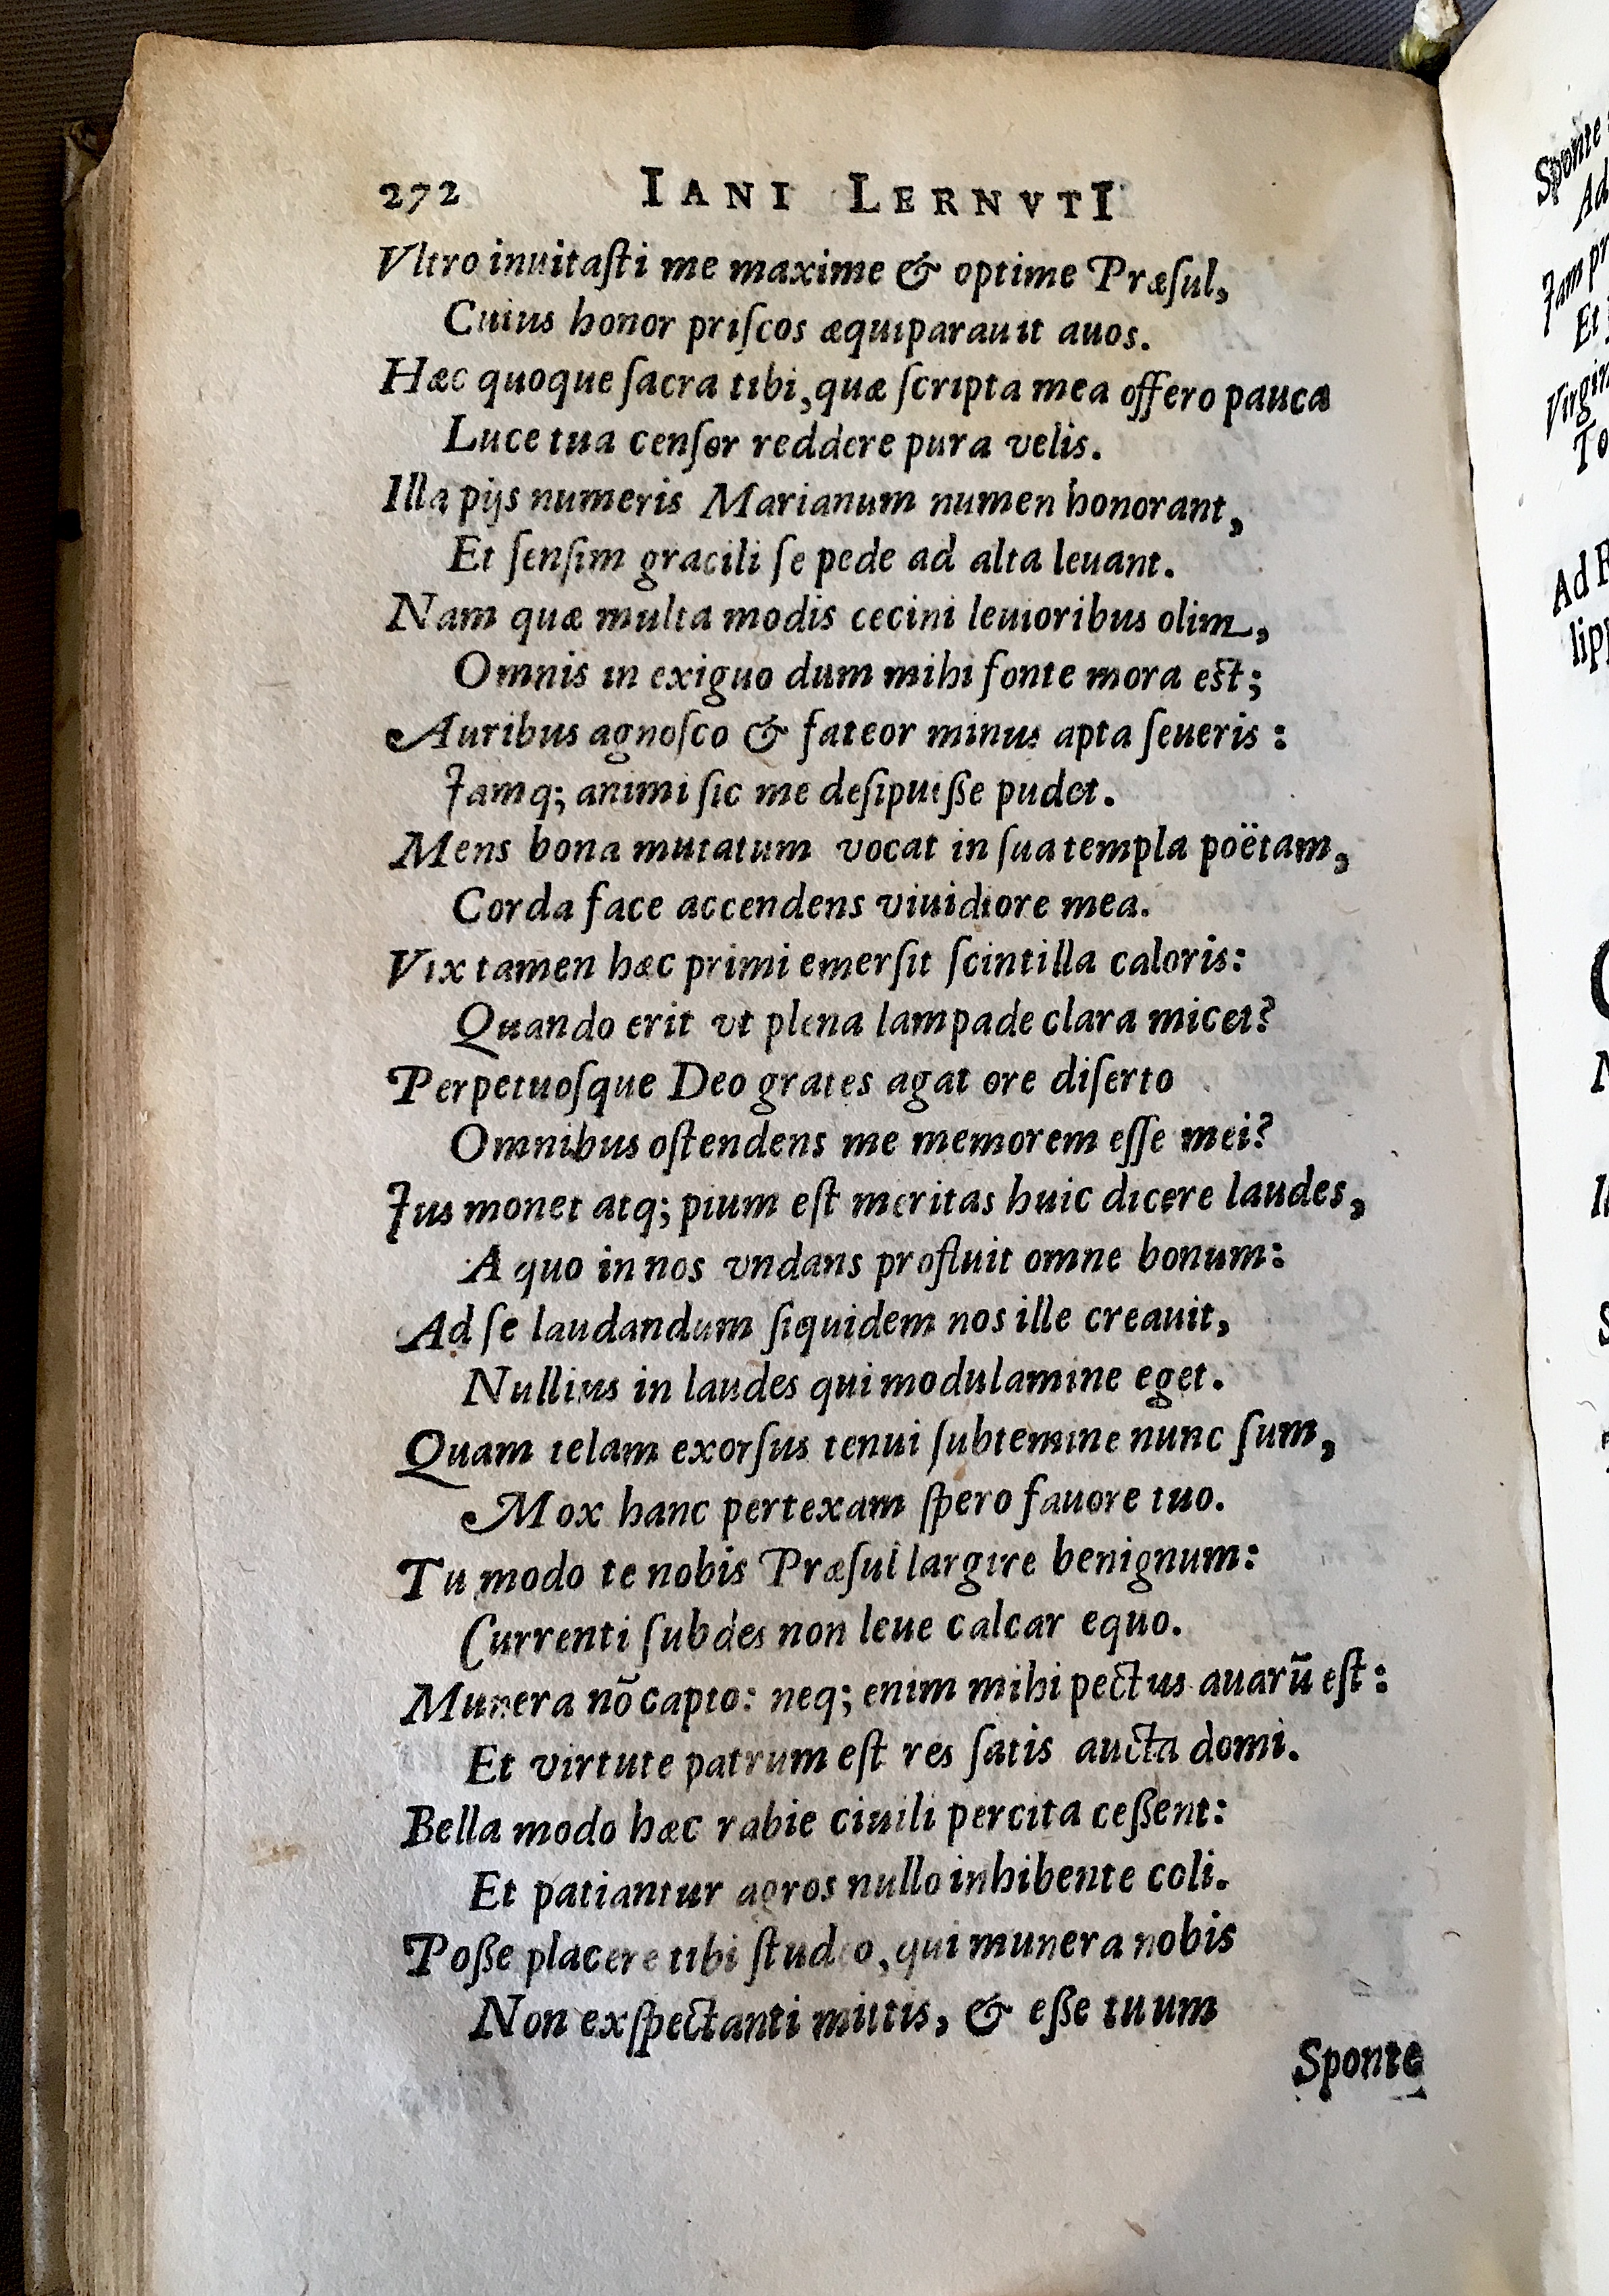 272 IANI LERNVTI
Vltro inuitaſti me maxime & optime Præſul,
Cuius honor priſcos æquiparauit auos.
Hæc quoque ſacra tibi, quæ ſcripta mea offero pauca
Luce tua cenſor reddere pura velis.
Illa pijs numeris Marianum numen honorant,
Et ſenſim gracili ſe pede ad alta leuant.
Nam quæ multa modis cecini leuioribus olim,
Omnis in exiguo dum mihi fonte mora est;
Auribus agnoſco & fateor minus apta ſeueris:
Jamq; animi ſic me deſipuiſſe pudet.
Mens bona mutatum vocat in ſua templa poëtam,
Corda face accendens viuidiore mea.
Vix tamen hæc primi emerſit ſcintilla caloris:
Quando erit vt plena lampade clara micet?
Perpetuoſque Deo grates agat ore diſerto
Omnibus oſtendens me memorem eſſe mei?
Jus monet atq; pium eſt meritas huic dicere laudes,
A quo in nos vndans profluit omne bonum:
Ad ſe laudandum ſiquidem nos ille creauit,
Nullius in laudes qui modulamine eget.
Quam telam exorſus tenui ſubtemine nunc ſum,
Mox hanc pertexam ſpero fauore tuo.
Tu modo te nobis Præſul largire benignum:
Currenti ſubdes non leue calcar equo.
Munera nõ capto: neq; enim mihi pectus auarũ eſt:
Et virtute patrum eſt res ſatis aucta domi.
Bella modo hæc rabie ciuili percita ceßent:
Et patiantur agros nullo inhibente coli.
Poße placere tibi ſtudeo, qui munera nobis
Non exſpectanti mittis, & eße tuum
Sponte
Sponte
Ad
Jam pr
Et
Virgin
To
Ad
lipp